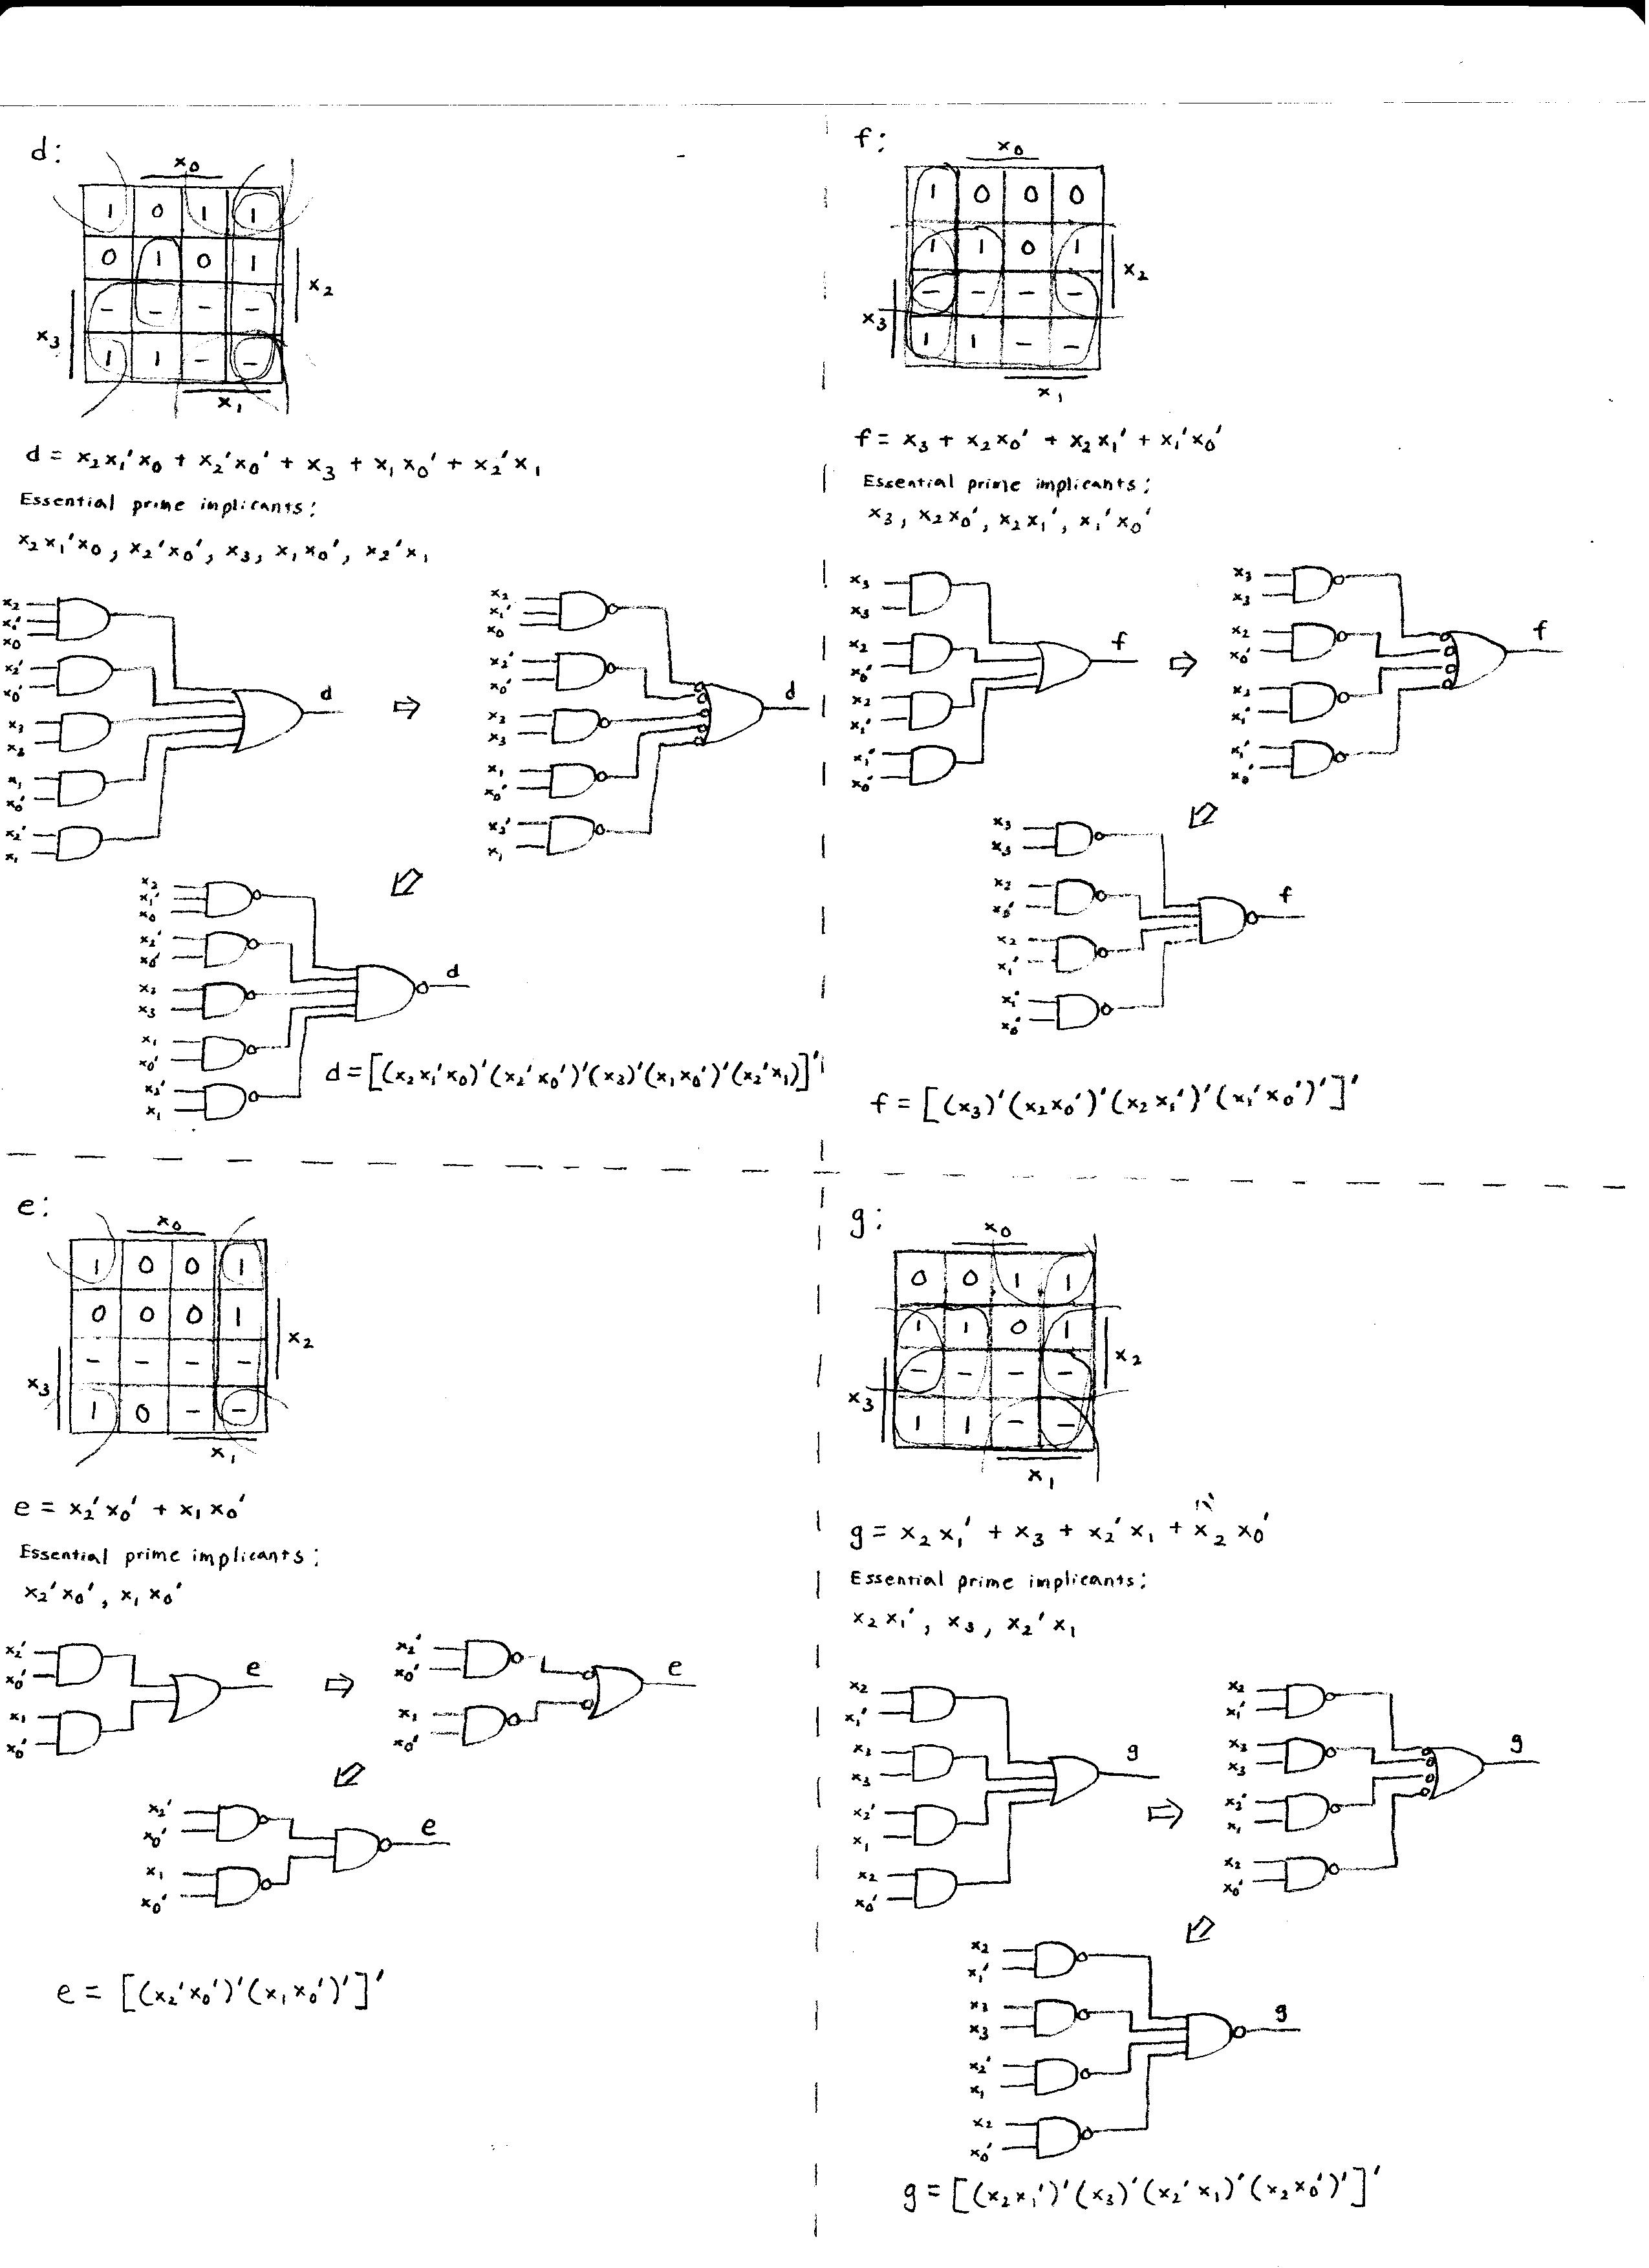 d:
x0
1 0 1 1
0 1 0 1
x2
- - - -
x3
1 1 - -
x1
d = x2x1'x0 + x2'x0' + x3 + x1x0' + x2'x1
Essential prime implicants:
x2x1'x0, x2'x0', x3, x1x0', x2'x1
x2
x1'
x0
x2'
x0'
x3
x3
x1
x0'
x2'
x1
d
⇒
x2
x1'
x0
x2'
x0'
x3
x3
x1
x0'
x2'
x1
d
x2
x1'
x0
x2'
x0'
x3
x3
x1
x0'
x2'
x1
d
d = [(x2x1'x0)'(x2'x0')'(x3)'(x1x0')'(x2'x1)]'
f:
x0
1 0 0 0
1 1 0 1
x2
- - - -
x3
1 1 - -
x1
f = x3 + x2x0' + x2x1' + x1'x0'
Essential prime implicants:
x3, x2x0', x2x1', x1'x0'
x3
x3
x2
x0'
x2
x1'
x1'
x0'
f
⇒
x3
x3
x2
x0'
x2
x1'
x1'
x0'
f
x3
x3
x2
x0'
x2
x1'
x1'
x0'
f
f = [(x3)'(x2x0')'(x2x1')'(x1'x0')']'
e:
x0
1 0 0 1
0 0 0 1
x2
- - - -
x3
1 0 - -
x1
e = x2'x0' + x1x0'
Essential prime implicants:
x2'x0', x1x0'
x2'
x0'
x1
x0'
e
⇒
x2'
x0'
x1
x0'
e
x2'
x0'
x1
x0'
e
e = [(x2'x0')'(x1x0')']'
g:
x0
0 0 1 1
1 1 0 1
x2
- - - -
x3
1 1 - -
x1
g = x2x1' + x3 + x2'x1 + x2x0'
Essential prime implicants:
x2x1', x3, x2'x1
x2
x1'
x3
x3
x2'
x1
x2
x0'
g
⇒
x2
x1'
x3
x3
x2'
x1
x2
x0'
g
x2
x1'
x3
x3
x2'
x1
x2
x0'
g
g = [(x2x1')'(x3)'(x2'x1)'(x2x0')']'